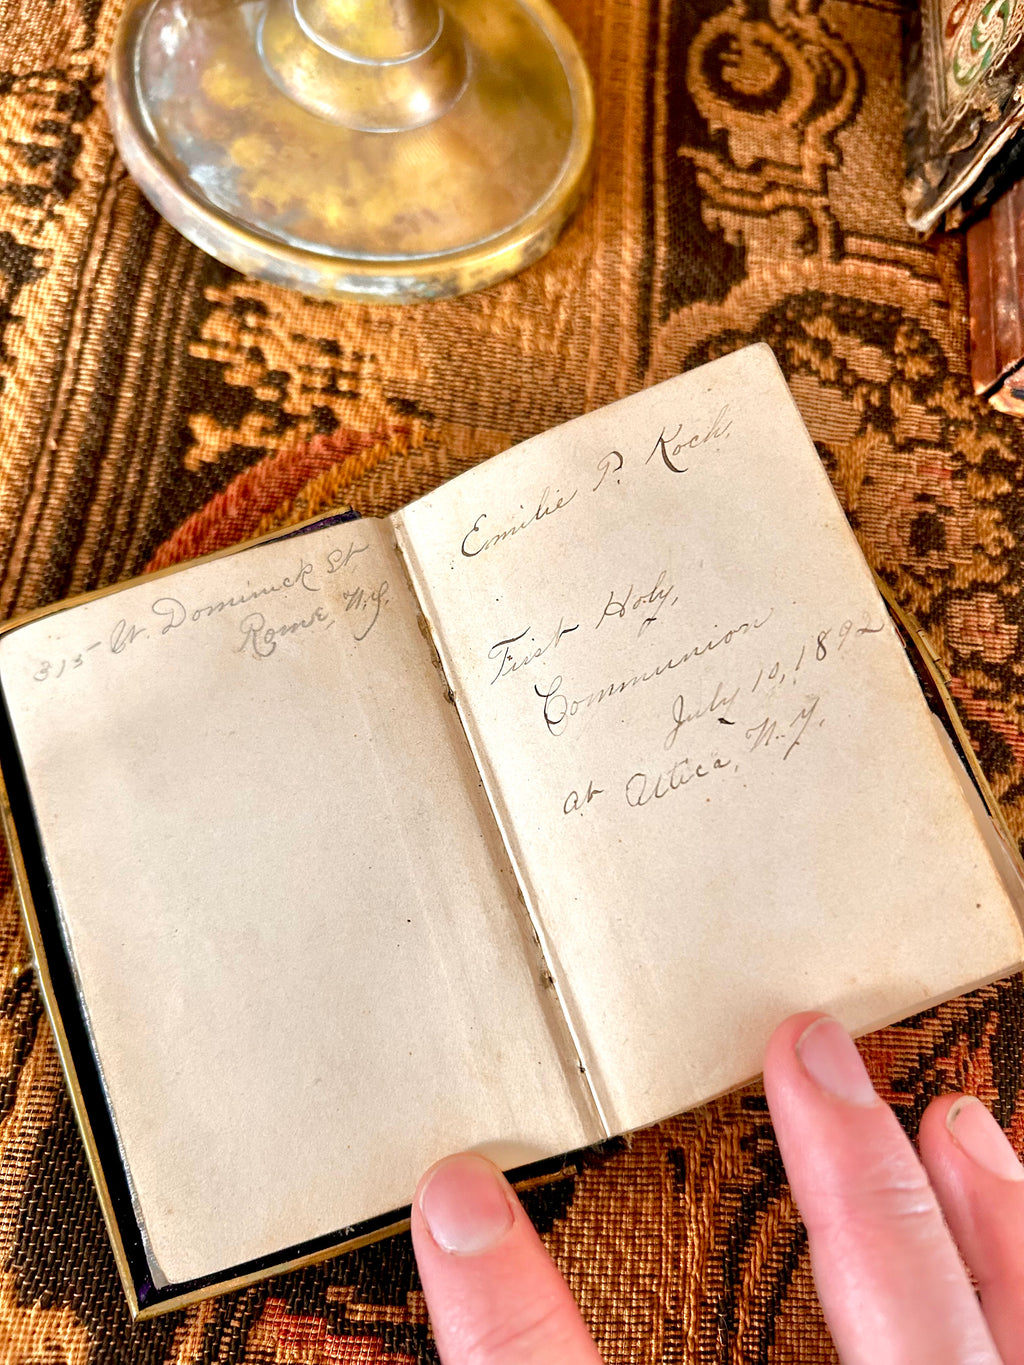 315 W. Dominick St.
Rome, N.Y.
Emilie P. Koch.
First Holy,
Communion
July 10, 1892
at Utica, N.Y.